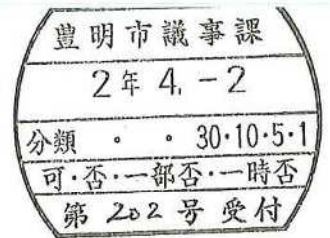 豊明市議事課
2年4.-2
分類 ・ ・ 30・10・5・1
可・否・一部否・一時否
第202号受付